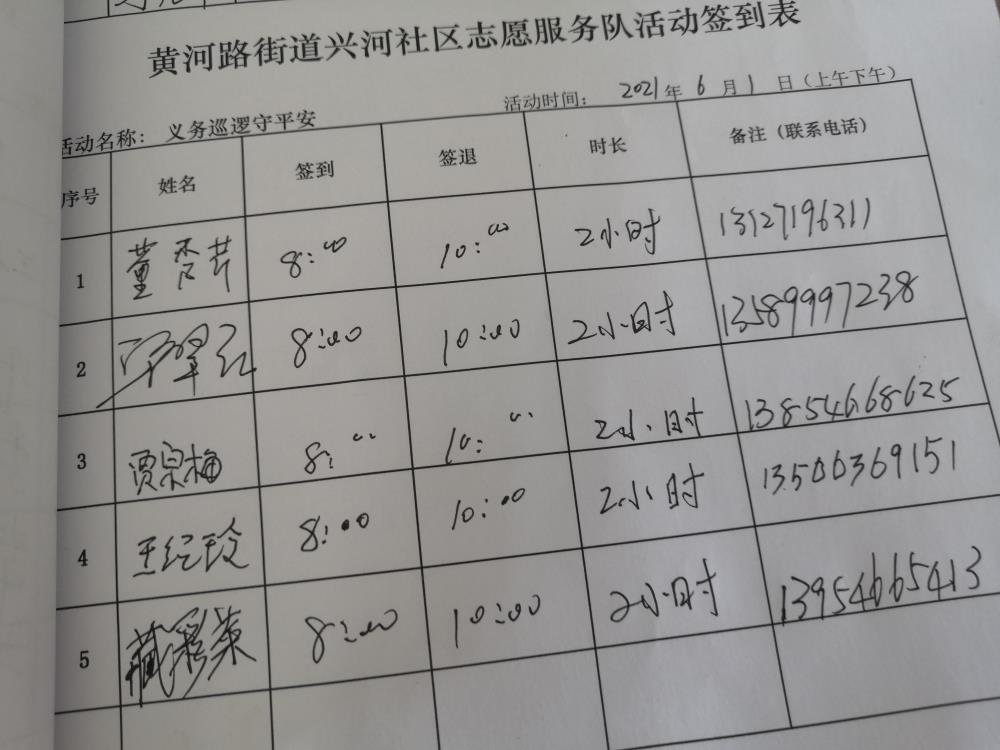 黄河路街道兴河社区志愿服务队活动签到表
活动名称： 义务巡逻守平安 活动时间： 2021年 6 月 1 日（上午下午）
序号 姓名 签到 签退 时长 备注（联系电话）
1 董秀芹 8:00 10:00 2小时 13127196311
2 翠红 8:00 10:00 2小时 13589997238
3 贾泉梅 8:00 10:00 2小时 13854668625
4 王纪玲 8:00 10:00 2小时 13506369151
5 臧彩荣 8:00 10:00 2小时 13954665413